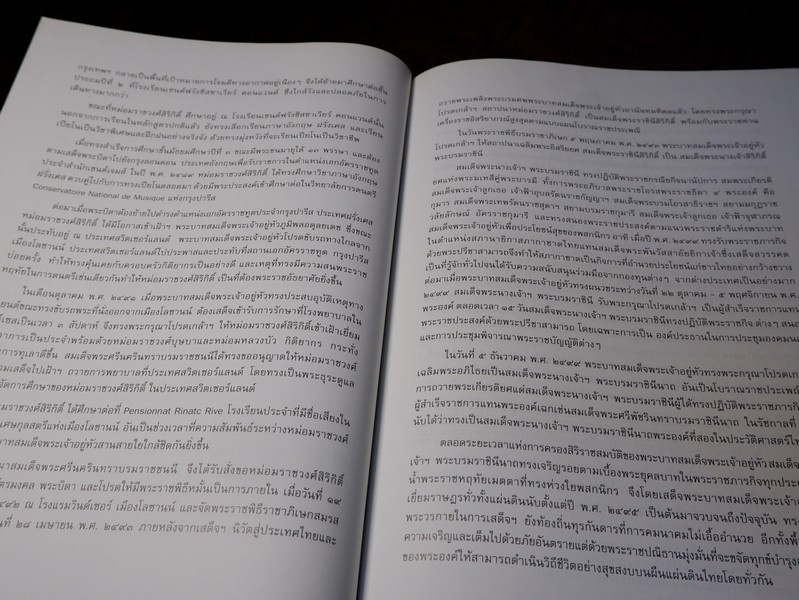 กรุงเทพฯ กลายเป็นพื้นที่เป้าหมายการโจมตีทางอากาศอยู่เนืองๆ จึงได้ย้ายมาศึกษาต่อชั้น
ประถมปีที่ ๒ ที่โรงเรียนเซนต์ฟรังซีสซาเวียร์ คอนแวนต์ ซึ่งใกล้วังและปลอดภัยในการ
เดินทางมากกว่า
ขณะที่หม่อมราชวงศ์สิริกิติ์ ศึกษาอยู่ ณ โรงเรียนเซนต์ฟรังซีสซาเวียร์ คอนแวนต์นั้น
นอกจากการเรียนในหลักสูตรปกติแล้ว ยังทรงเลือกเรียนภาษาอังกฤษ ฝรั่งเศส และเรียน
เปียโนเป็นวิชาพิเศษและฝึกฝนอย่างจริงจัง ด้วยทรงมุ่งหวังที่จะเรียนเปียโนเป็นวิชาชีพ
เมื่อทรงสำเร็จการศึกษาชั้นมัธยมศึกษาปีที่ ๓ ขณะมีพระชนมายุได้ ๑๓ พรรษา และต้อง
ตามเสด็จพระบิดาไปยังกรุงลอนดอน ประเทศอังกฤษเพื่อรับราชการในตำแหน่งเอกอัครราชทูต
ประจำสำนักเซนต์เจมส์ ในปี พ.ศ. ๒๔๘๙ หม่อมราชวงศ์สิริกิติ์ ได้ทรงศึกษาวิชาภาษาอังกฤษ
ฝรั่งเศส ควบคู่ไปกับการทรงเปียโนตลอดมา ด้วยมีพระประสงค์เข้าศึกษาต่อในวิทยาลัยการดนตรี
Conservatoire National de Musique แห่งกรุงปารีส
ต่อมาเมื่อพระบิดาต้องย้ายไปดำรงตำแหน่งเอกอัครราชทูตประจำกรุงปารีส ประเทศฝรั่งเศส
หม่อมราชวงศ์สิริกิติ์ ได้มีโอกาสเข้าเฝ้าฯ พระบาทสมเด็จพระเจ้าอยู่หัวภูมิพลอดุลยเดช ซึ่งขณะ
นั้นประทับอยู่ ณ ประเทศสวิตเซอร์แลนด์ พระบาทสมเด็จพระเจ้าอยู่หัวโปรดขับรถทางไกลจาก
เมืองโลซานน์ ประเทศสวิตเซอร์แลนด์ไปประพาสและประทับที่สถานเอกอัครราชทูต กรุงปารีส
บ่อยครั้ง ทำให้ทรงคุ้นเคยกับครอบครัวกิติยากรเป็นอย่างดี และเหตุที่ทรงมีความสนพระราช
หฤทัยในการดนตรีเช่นเดียวกันทำให้หม่อมราชวงศ์สิริกิติ์ เป็นที่ต้องพระราชอัธยาศัยยิ่งขึ้น
ในเดือนตุลาคม พ.ศ. ๒๔๙๑ เมื่อพระบาทสมเด็จพระเจ้าอยู่หัวทรงประสบอุบัติเหตุทาง
ยนต์ขณะทรงขับรถพระที่นั่งออกจากเมืองโลซานน์ ต้องเสด็จเข้ารับการรักษาที่โรงพยาบาลใน
เซสเป็นเวลา ๓ สัปดาห์ จึงทรงพระกรุณาโปรดเกล้าฯ ให้หม่อมราชวงศ์สิริกิติ์เข้าเฝ้าเยี่ยม
อาการเป็นประจำพร้อมด้วยหม่อมราชวงศ์บุษบาและหม่อมหลวงบัว กิติยากร กระทั่ง
การทุเลาดีขึ้น สมเด็จพระศรีนครินทราบรมราชชนนีได้ทรงขออนุญาตให้หม่อมราชวงศ์
วมเสด็จไปเฝ้าฯ ถวายการพยาบาลที่ประเทศสวิตเซอร์แลนด์ โดยทรงเป็นพระธุระดูแล
จัดการศึกษาของหม่อมราชวงศ์สิริกิติ์ ในประเทศสวิตเซอร์แลนด์
มราชวงศ์สิริกิติ์ ได้ศึกษาต่อที่ Pensionnat Rinatc Rive โรงเรียนประจำที่มีชื่อเสียงใน
เศษกุลสตรีแห่งเมืองโลซานน์ อันเป็นช่วงเวลาที่ความสัมพันธ์ระหว่างหม่อมราชวงศ์
บาทสมเด็จพระเจ้าอยู่หัวสานสายใยใกล้ชิดกันยิ่งขึ้น
มาสมเด็จพระศรีนครินทราบรมราชชนนี จึงได้รับสั่งขอหม่อมราชวงศ์สิริกิติ์
ตรมงคล พระบิดา และโปรดให้มีพระราชพิธีหมั้นเป็นการภายใน เมื่อวันที่ ๑๙
๔๙๒ ณ โรงแรมวินด์เซอร์ เมืองโลซานน์ และจัดพระราชพิธีราชาภิเษกสมรส
นที่ ๒๘ เมษายน พ.ศ. ๒๔๙๓ ภายหลังจากเสด็จฯ นิวัตสู่ประเทศไทยและ
ถวายพระเพลิงพระบรมศพพระบาทสมเด็จพระเจ้าอยู่หัวอานันทมหิดลแล้ว โดยทรงพระกรุณา
โปรดเกล้าฯ สถาปนาหม่อมราชวงศ์สิริกิติ์ เป็นสมเด็จพระราชินีสิริกิติ์ พร้อมกับพระราชทาน
เครื่องราชอิสริยาภรณ์สูงสุดตามแบบแผนโบราณราชประเพณี
ในวันพระราชพิธีบรมราชาภิเษก ๕ พฤษภาคม พ.ศ. ๒๔๙๓ พระบาทสมเด็จพระเจ้าอยู่หัว
โปรดเกล้าฯ ให้สถาปนาเฉลิมพระอิสริยยศ สมเด็จพระราชินีสิริกิติ์ เป็น สมเด็จพระนางเจ้าสิริกิติ์
พระบรมราชินี
สมเด็จพระนางเจ้าฯ พระบรมราชินี ทรงปฏิบัติพระราชกรณียกิจนานัปการ สมพระเกียรติ
ยศแห่งพระแม่เสทีคู่พระบารมี ทั้งการพระอภิบาลพระราชโอรสพระราชธิดา ๔ พระองค์ คือ
สมเด็จพระเจ้าลูกเธอ เจ้าฟ้าอุบลรัตนราชกัญญาฯ สมเด็จพระบรมโอรสาธิราชฯ สยามมกุฎราช
กุมาร สมเด็จพระเทพรัตนราชสุดาฯ สยามบรมราชกุมารี สมเด็จพระเจ้าลูกเธอ เจ้าฟ้าจุฬาภรณ
วลัยลักษณ์ อัครราชกุมารี และทรงสนองพระราชประสงค์ตามแนวพระราชดำริแห่งพระบาท
สมเด็จพระเจ้าอยู่หัวเพื่อประโยชน์สุขของพสกนิกร อาทิ เมื่อปี พ.ศ. ๒๔๙๙ ทรงรับพระราชภารกิจ
ในตำแหน่งสภานายิกาสภากาชาดไทยแทนสมเด็จพระพันวัสสาอัยยิกาเจ้าซึ่งเสด็จสวรรคต
ด้วยพระปรีชาสามารถจึงทำให้สภากาชาดเป็นกิจการที่อำนวยประโยชน์แก่ชาวไทยอย่างกว้างขวาง
เป็นที่รู้จักทั่วไปจนได้รับความสนับสนุนร่วมมือจากกองทุนต่างๆ จากต่างประเทศเป็นอย่างมาก
ต่อมาเมื่อพระบาทสมเด็จพระเจ้าอยู่หัวทรงผนวชระหว่างวันที่ ๒๒ ตุลาคม - ๕ พฤศจิกายน พ.ศ.
๒๔๙๙ สมเด็จพระนางเจ้าฯ พระบรมราชินี รับพระกรุณาโปรดเกล้าฯ เป็นผู้สำเร็จราชการแทน
พระองค์ ตลอดเวลา ๑๕ วันสมเด็จพระนางเจ้าฯ พระบรมราชินีทรงปฏิบัติพระราชกิจ ต่างๆ สนอง
พระราชประสงค์ด้วยพระปรีชาสามารถ โดยเฉพาะการเป็น องค์ประธานในการประชุมองคมนตรี
และการประชุมพิจารณาพระราชบัญญัติต่างๆ
ในวันที่ ๕ ธันวาคม พ.ศ. ๒๔๙๙ พระบาทสมเด็จพระเจ้าอยู่หัวทรงพระกรุณาโปรดเกล้าฯ
เฉลิมพระอภิไธยเป็นสมเด็จพระนางเจ้าฯ พระบรมราชินีนาถ อันเป็นโบราณราชประเพณี
การถวายพระเกียรติยศแด่สมเด็จพระนางเจ้าฯ พระบรมราชินีผู้ได้ทรงปฏิบัติพระราชภารกิจ
ผู้สำเร็จราชการแทนพระองค์เฉกเช่นสมเด็จพระศรีพัชรินทราบรมราชินีนาถ ในรัชกาลที่
นับได้ว่าทรงเป็นสมเด็จพระนางเจ้าฯ พระบรมราชินีนาถพระองค์ที่สองในประวัติศาสตร์ไทย
ตลอดระยะเวลาแห่งการครองสิริราชสมบัติของพระบาทสมเด็จพระเจ้าอยู่หัว สมเด็จพระนาง
เจ้าฯ พระบรมราชินีนาถทรงเจริญรอยตามเบื้องพระยุคลบาทในพระราชภารกิจทุกประการ
น้ำพระราชหฤทัยเมตตาที่ทรงห่วงใยพสกนิกร จึงโดยเสด็จพระบาทสมเด็จพระเจ้าอยู่หัว
เยี่ยมราษฎรทั่วทั้งแผ่นดินนับตั้งแต่ปี พ.ศ. ๒๔๙๕ เป็นต้นมาจวบจนถึงปัจจุบัน ทรง
พระวรกายในการเสด็จฯ ยังท้องถิ่นทุรกันดารที่การคมนาคมไม่เอื้ออำนวย อีกทั้งพื้น
ความเจริญและเต็มไปด้วยภัยอันตรายแต่ด้วยพระราชปณิธานมุ่งมั่นที่จะขจัดทุกข์บำรุงสุข
ของพระองค์ให้สามารถดำเนินวิถีชีวิตอย่างสุขสงบบนผืนแผ่นดินไทยโดยทั่วกัน